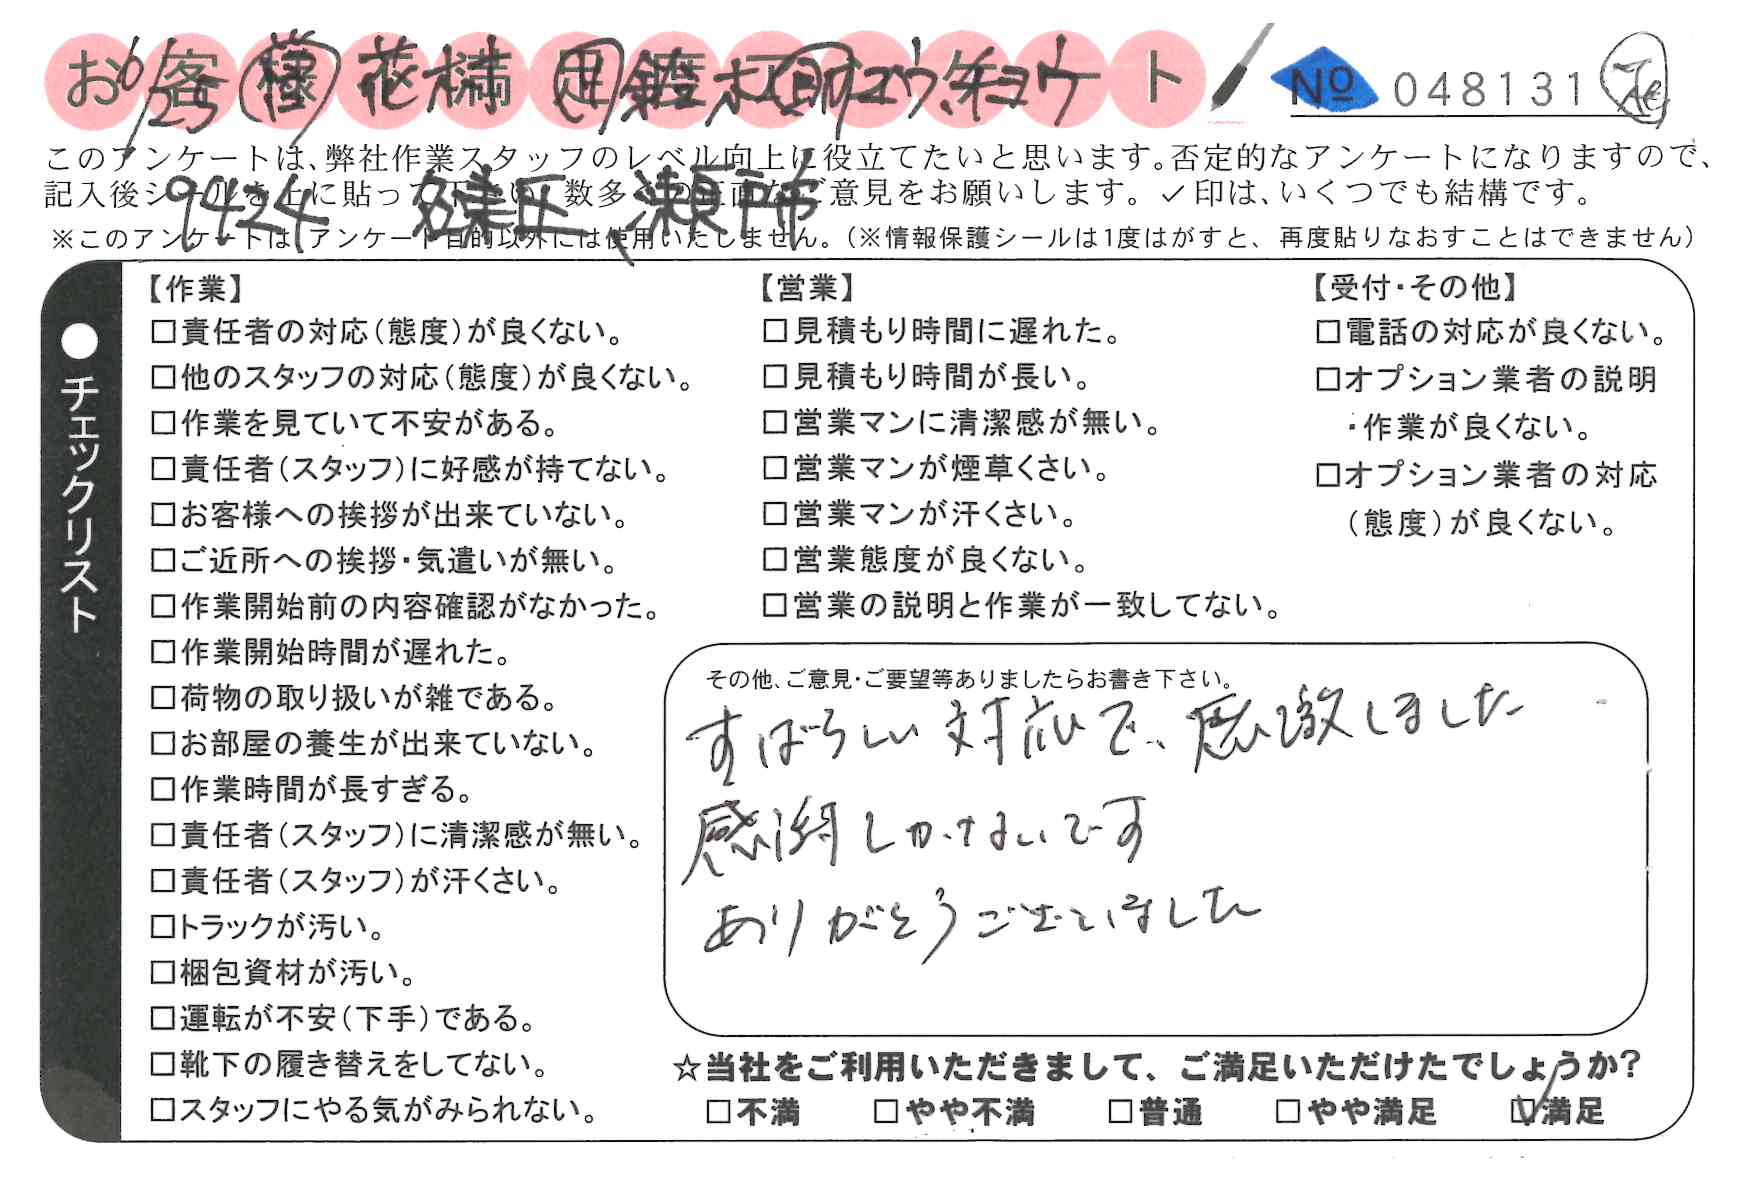 お客様満足度アンケート
6/25
No 048131
このアンケートは、弊社作業スタッフのレベル向上に役立てたいと思います。否定的なアンケートになりますので、
記入後シールを上に貼って下さい。数多くの正直なご意見をお願いします。✓印は、いくつでも結構です。
9424 緑区 瀬戸市
※このアンケートは、アンケート目的以外には使用いたしません。(※情報保護シールは1度はがすと、再度貼りなおすことはできません)
●チェックリスト
【作業】
□責任者の対応(態度)が良くない。
□他のスタッフの対応(態度)が良くない。
□作業を見ていて不安がある。
□責任者(スタッフ)に好感が持てない。
□お客様への挨拶が出来ていない。
□ご近所への挨拶・気遣いが無い。
□作業開始前の内容確認がなかった。
□作業開始時間が遅れた。
□荷物の取り扱いが雑である。
□お部屋の養生が出来ていない。
□作業時間が長すぎる。
□責任者(スタッフ)に清潔感が無い。
□責任者(スタッフ)が汗くさい。
□トラックが汚い。
□梱包資材が汚い。
□運転が不安(下手)である。
□靴下の履き替えをしてない。
□スタッフにやる気がみられない。
【営業】
□見積もり時間に遅れた。
□見積もり時間が長い。
□営業マンに清潔感が無い。
□営業マンが煙草くさい。
□営業マンが汗くさい。
□営業態度が良くない。
□営業の説明と作業が一致してない。
【受付・その他】
□電話の対応が良くない。
□オプション業者の説明
・作業が良くない。
□オプション業者の対応
(態度)が良くない。
その他、ご意見・ご要望等ありましたらお書き下さい。
すばらしい対応で、感激しました
感謝しかないです
ありがとうございました
☆当社をご利用いただきまして、ご満足いただけたでしょうか?
□不満 □やや不満 □普通 □やや満足 ☑満足